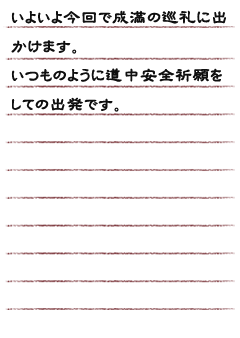 いよいよ今回で成満の巡礼に出
かけます。
いつものように道中安全祈願を
しての出発です。